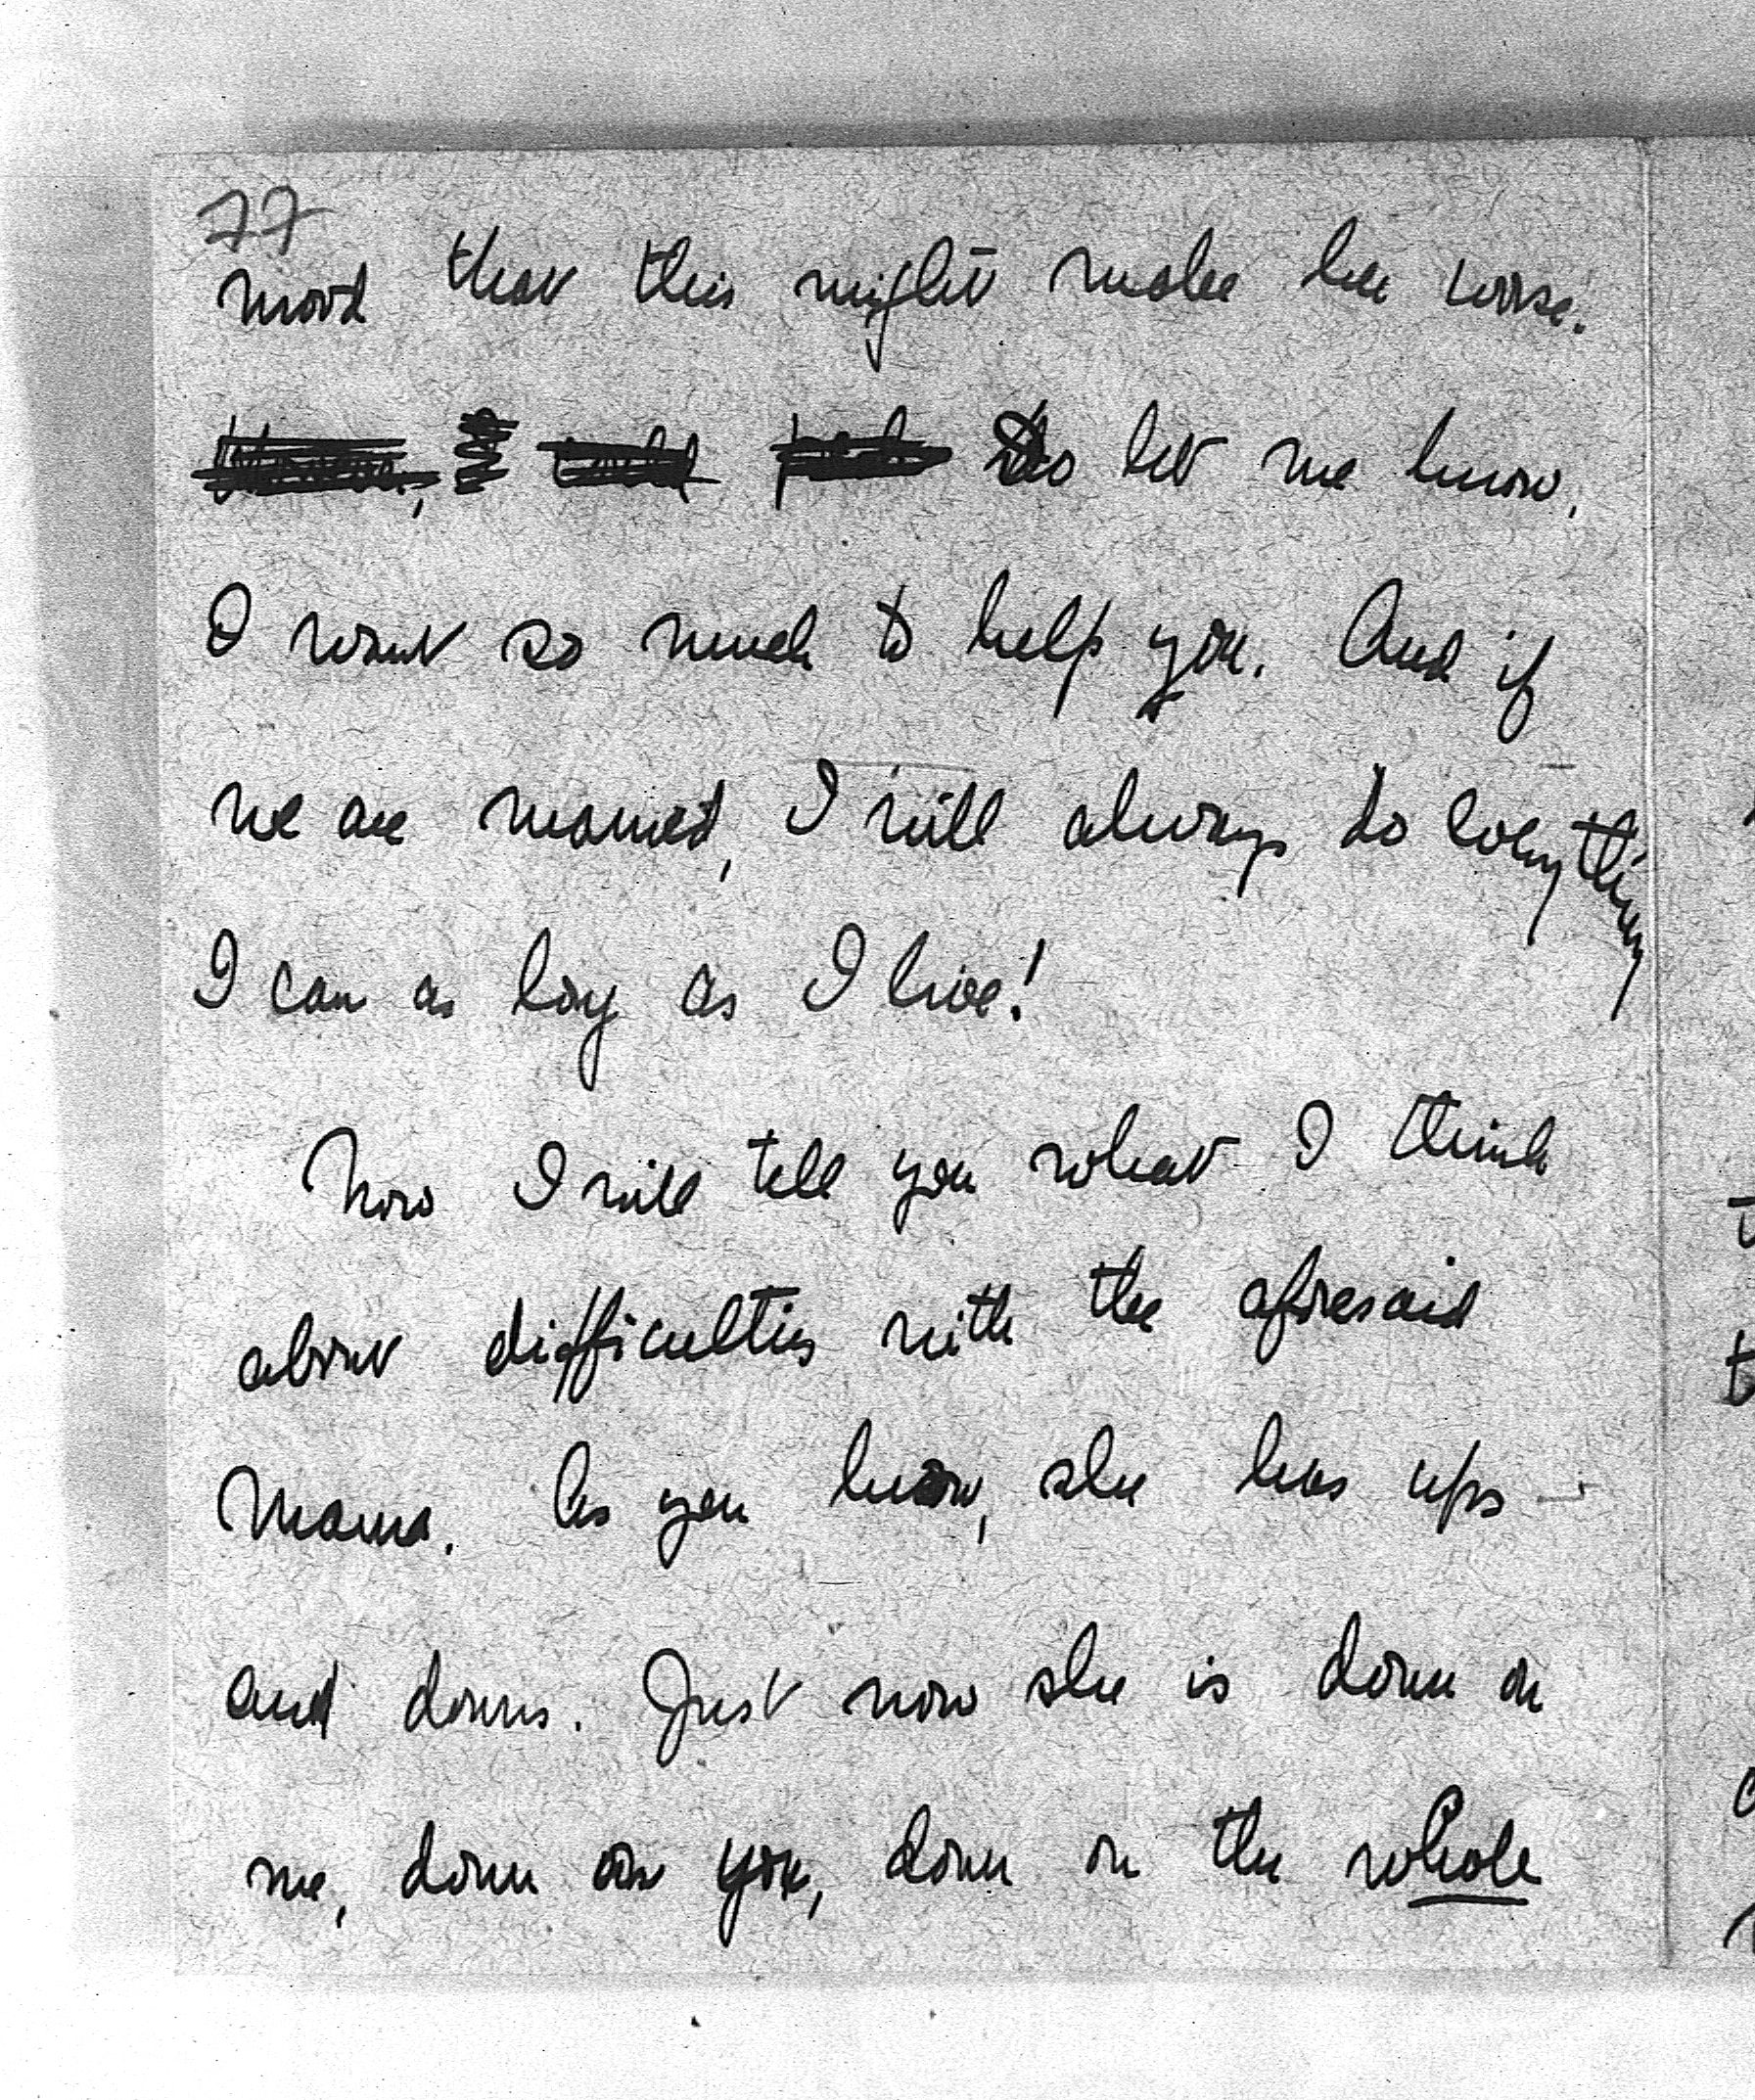 77
mood that this might make her worse.
Do let me know,
I want so much to help you. And if
we are married, I will always do everything
I can as long as I live!
Now I will tell you what I think
about difficulties with the aforesaid
Mama. As you know, she has ups
and downs. Just now she is down on
me, down on you, down on the whole